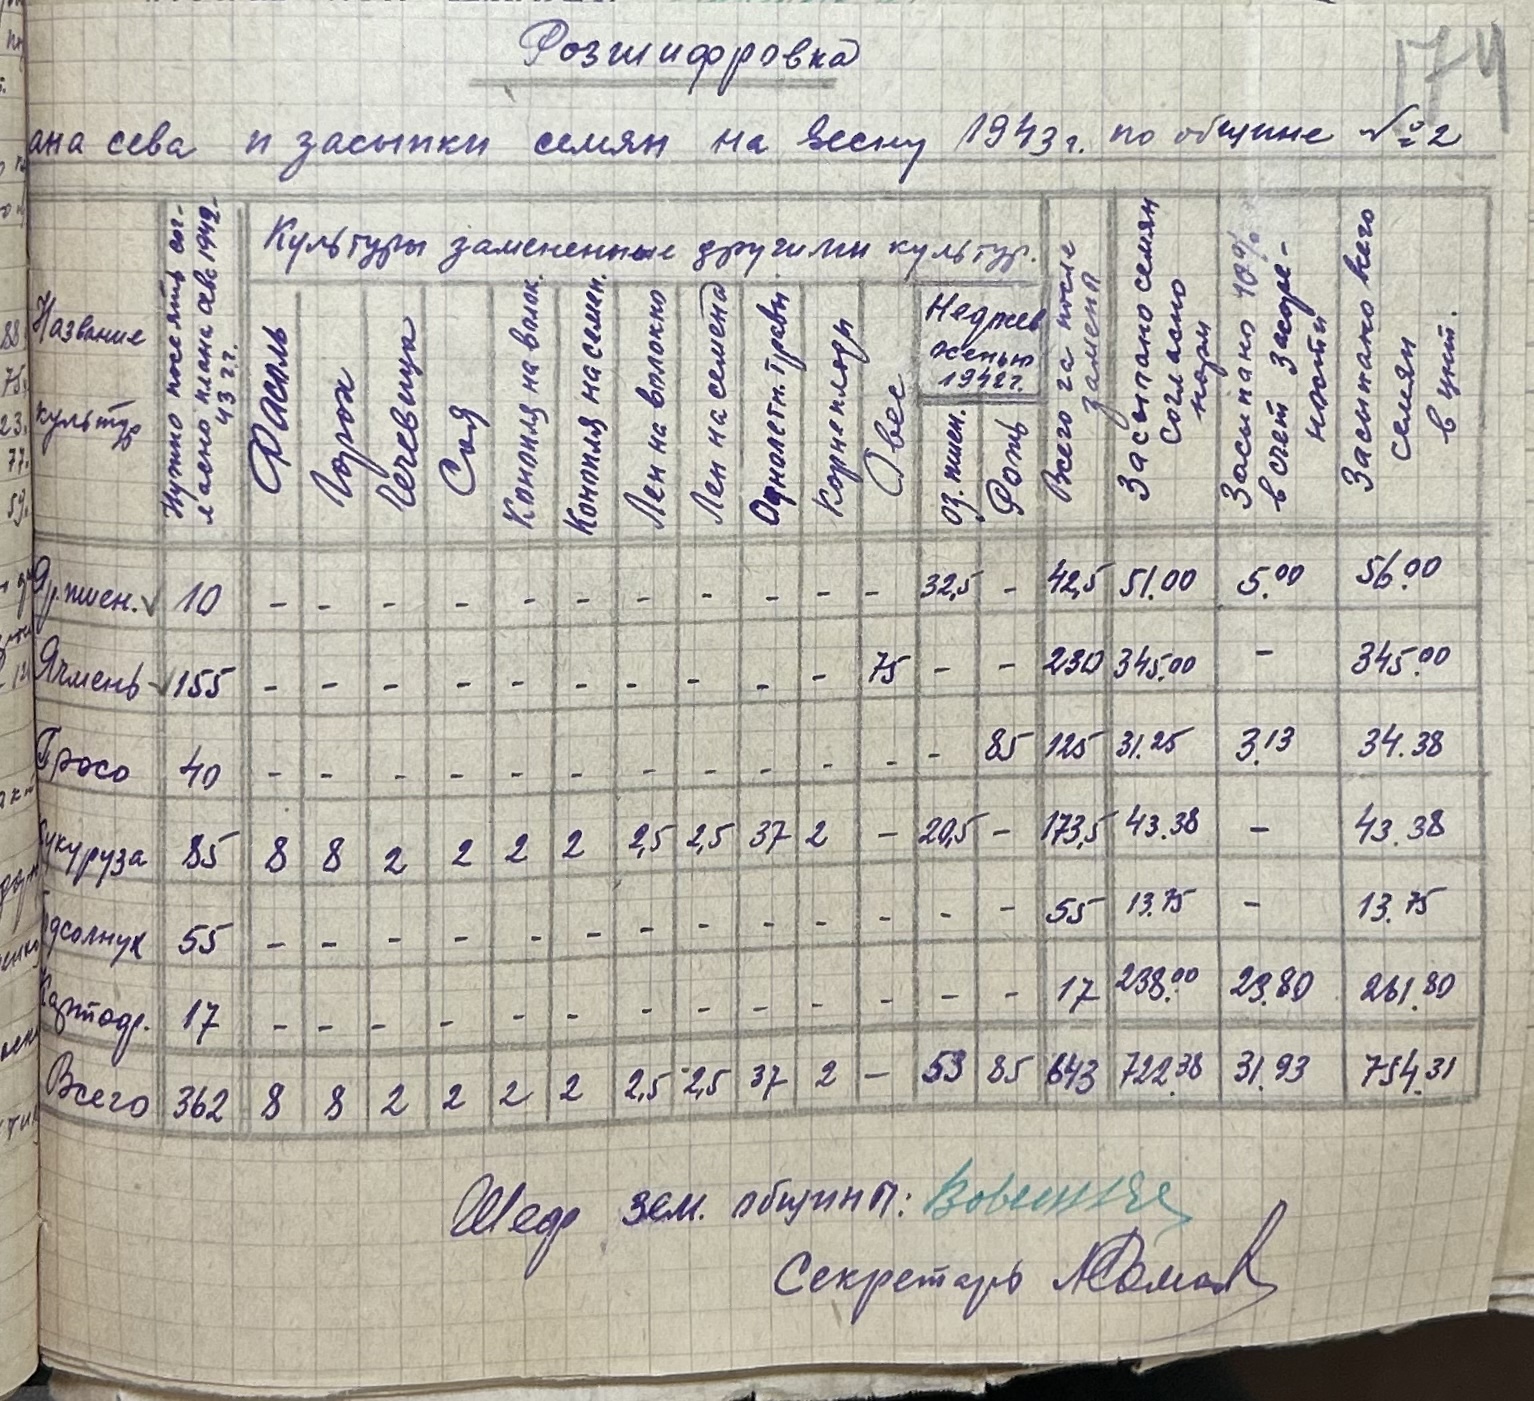 Розшифровка
174
ана сева и засыпки семян на весну 1943 г. по общине № 2
Название культур
Нужно посеять сог-ласно плана сев. 1942-43 г.г.
Культуры замененные другими культур.
Фасоль
Горох
Чечевица
Соя
Конопля на волок.
Конопля на семен.
Лен на волокно
Лен на семена
Однолетн. травы
Корнеплоды
Овес
Недосев осенью 1942 г.
оз. пшен.
Рожь
Всего га после замены
Засыпано семян согласно норм
Засыпано 10% в счет засоре-ности
Засыпано всего семян в цнт.
Яр. пшен. √ 10 - - - - - - - - - - - 32,5 - 42,5 51.00 5.00 56.00
Ячмень √ 155 - - - - - - - - - - 75 - - 230 345.00 - 345.00
Просо 40 - - - - - - - - - - - - 85 125 31.25 3.13 34.38
укуруза 85 8 8 2 2 2 2 2,5 2,5 37 2 - 20,5 - 173,5 43.38 - 43.38
дсолнух 55 - - - - - - - - - - - - - 55 13.75 - 13.75
Картоф. 17 - - - - - - - - - - - - - 17 238.00 23.80 261.80
Всего 362 8 8 2 2 2 2 2,5 2,5 37 2 - 53 85 643 722.38 31.93 754.31
Шеф зем. общины:
Секретарь